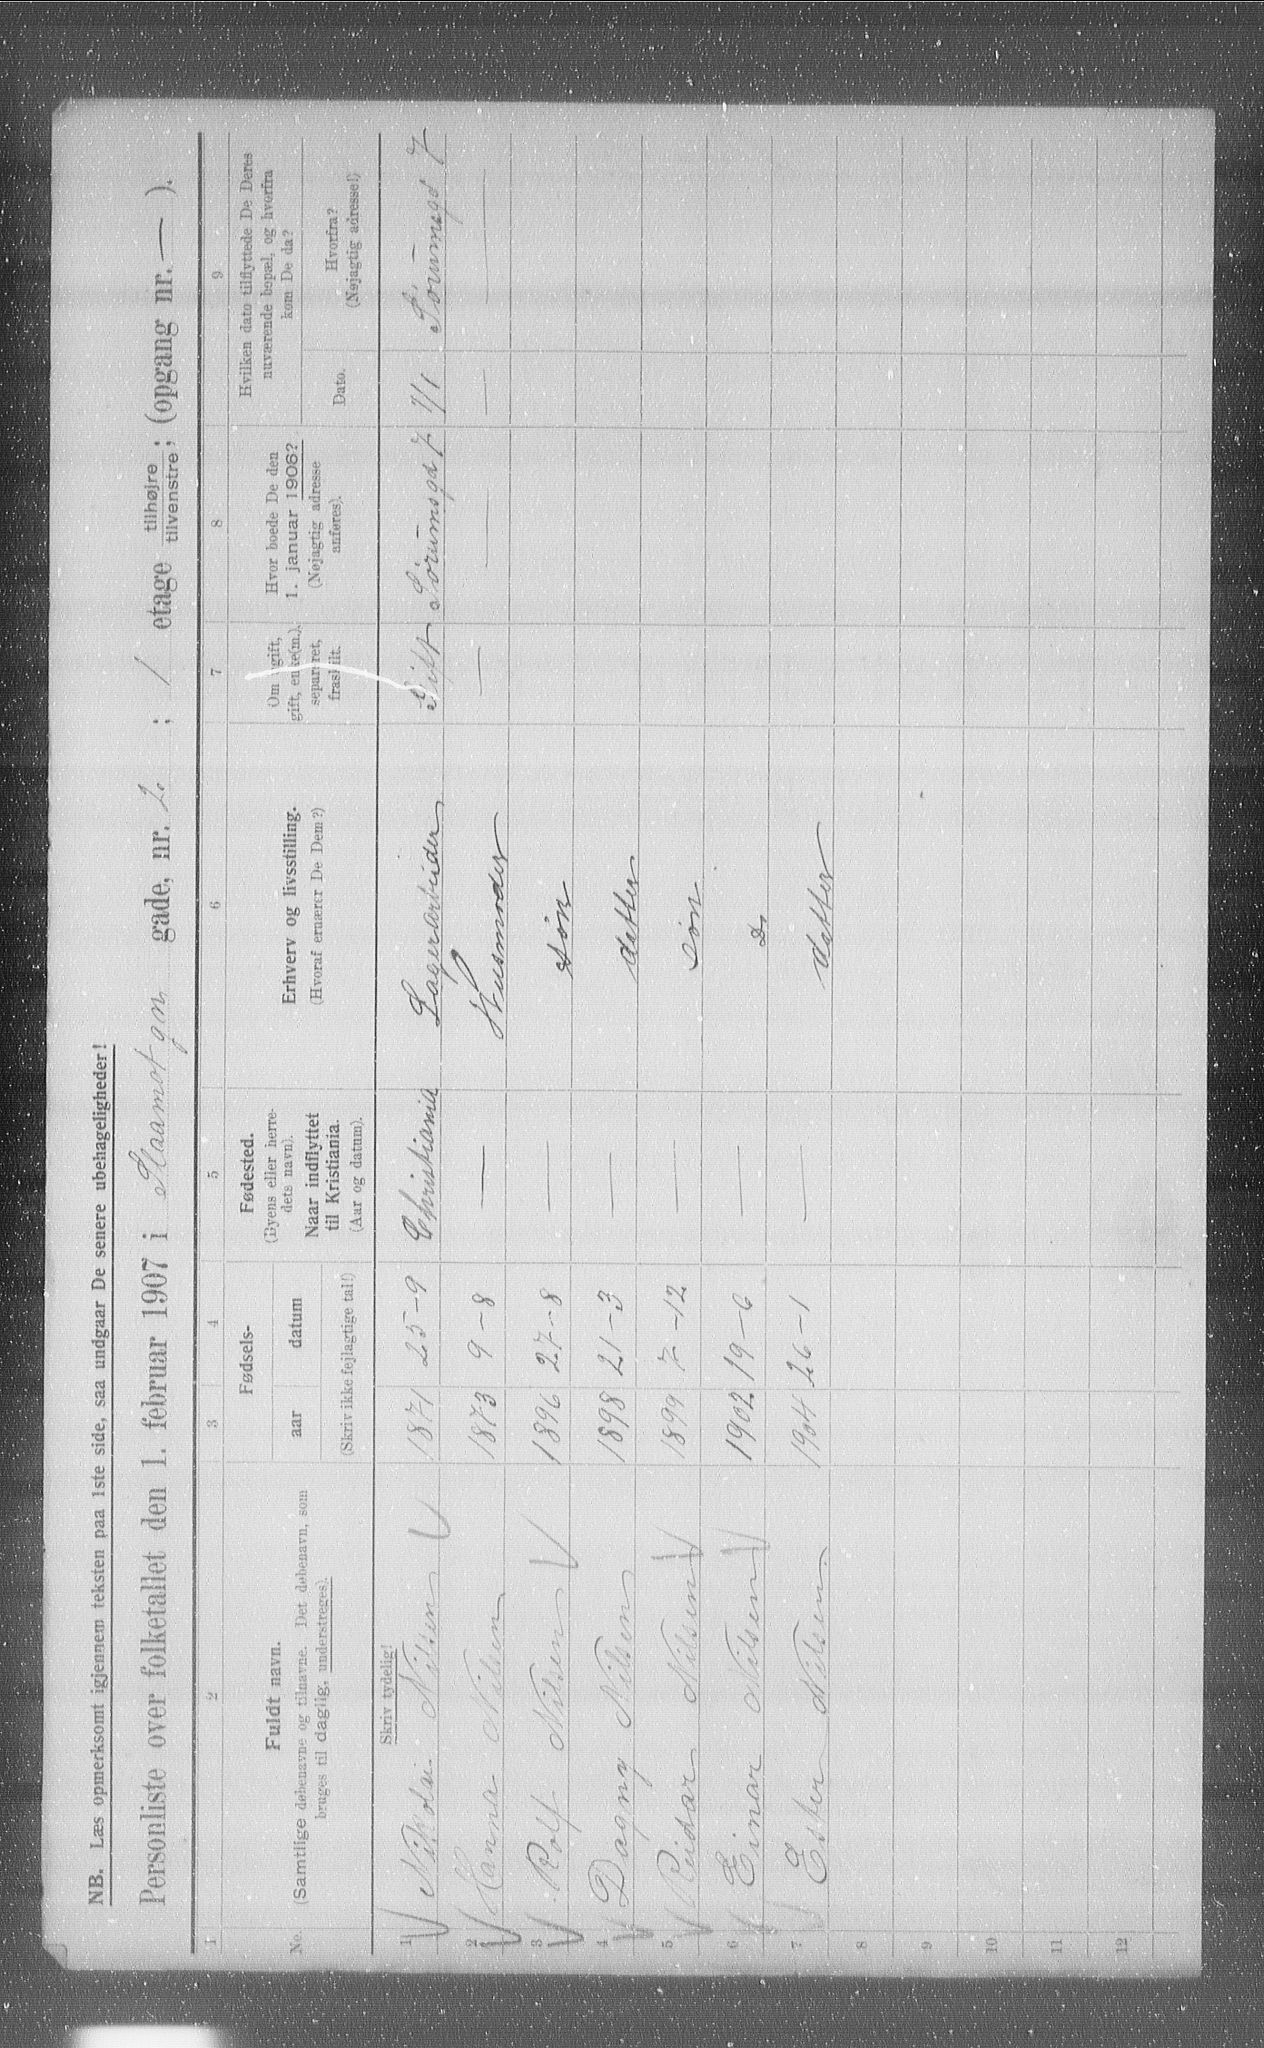 NB. Læs opmerksomt igjennem teksten paa 1ste side, saa undgaar De senere ubehageligheder!
Personliste over folketallet den 1. februar 1907 i Flaamot gn gade, nr. 2. ; 1 etage tilhøjre tilvenstre; (opgang nr. — ).
1 2 3 4 5 6 7 8 9
No.
Fuldt navn.
(Samtlige døbenavne og tilnavne. Det døbenavn, som
bruges til daglig, understreges).
Fødsels-
aar datum
(Skriv ikke fejlagtige tal!)
Fødested.
(Byens eller herre-
dets navn).
Naar indflyttet
til Kristiania.
(Aar og datum).
Erhverv og livsstilling.
(Hvoraf ernærer De Dem?)
Om ugift,
gift, enke(m.),
separeret,
fraskilt.
Hvor boede De den
1. januar 1906?
(Nøjagtig adresse
anføres).
Hvilken dato tilflyttede De Deres
nuværende bopæl, og hvorfra
kom De da?
Dato.
Hvorfra?
(Nøjagtig adresse!)
Skriv tydelig!
1 Nikolai Nilsen 1871 25-9 Christiania Lagerarbeider Gift Sørumsgd 7 1/1 Sørumsgd 7
2 Hanna Nilsen 1873 9-8 — Husmoder — — — —
3 Rolf Nilsen 1896 27-8 — søn
4 Dagny Nilsen 1898 21-3 — datter
5 Reidar Nilsen 1899 7-12 — søn
6 Einar Nilsen 1902 19-6 — Do
7 Ester Nilsen 1904 26-1 — datter
8
9
10
11
12